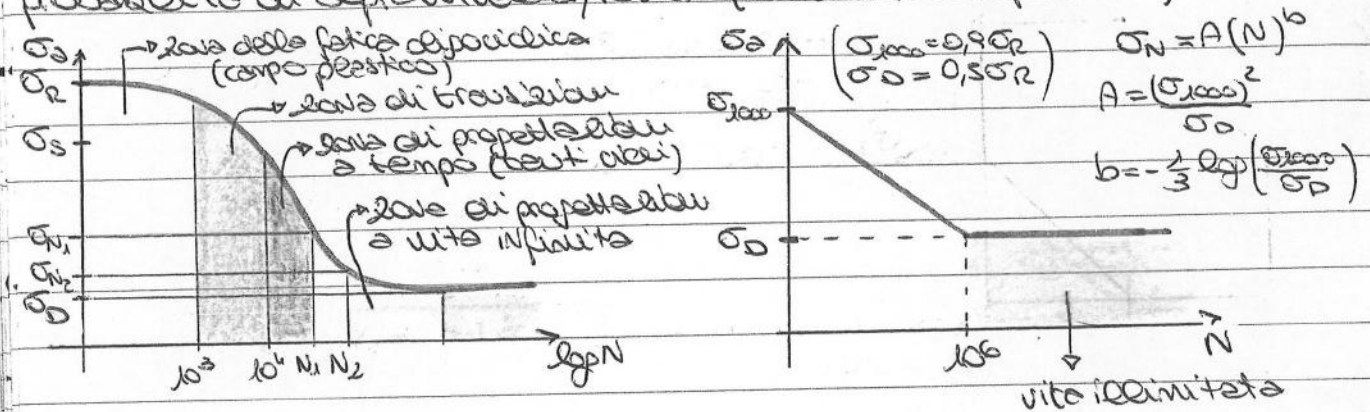 σa
σR
σS
σN1
σN2
σD
zona della fatica oligociclica
(campo plastico)
zona di transizione
zona di progettazione
a tempo (tanti cicli)
zona di progettazione
a vita infinita
10³ 10⁴ N1 N2
logN
σa
(σ1000=0,9σR
σD=0,5σR)
σN=A(N)^b
A=(σ1000)²/σD
b=-1/3 log(σ1000/σD)
σ1000
σD
10⁶
N
vita illimitata